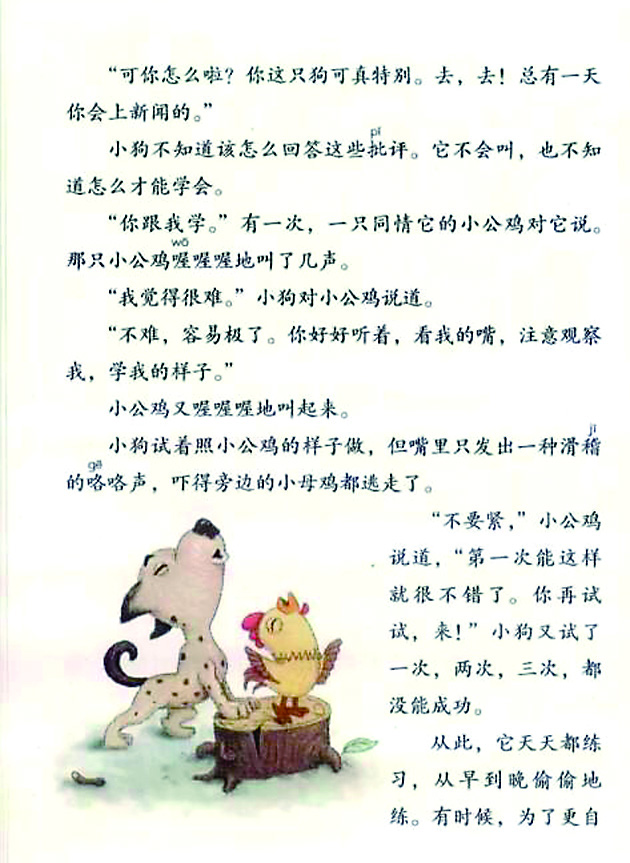 “可你怎么啦？你这只狗可真特别。去，去！总有一天
你会上新闻的。”
pī
小狗不知道该怎么回答这些批评。它不会叫，也不知
道怎么才能学会。
“你跟我学。”有一次，一只同情它的小公鸡对它说。
wō
那只小公鸡喔喔喔地叫了几声。
“我觉得很难。”小狗对小公鸡说道。
“不难，容易极了。你好好听着，看我的嘴，注意观察
我，学我的样子。”
小公鸡又喔喔喔地叫起来。
jī
小狗试着照小公鸡的样子做，但嘴里只发出一种滑稽
gē
的咯咯声，吓得旁边的小母鸡都逃走了。
“不要紧，”小公鸡
说道，“第一次能这样
就很不错了。你再试
试，来！”小狗又试了
一次，两次，三次，都
没能成功。
从此，它天天都练
习，从早到晚偷偷地
练。有时候，为了更自